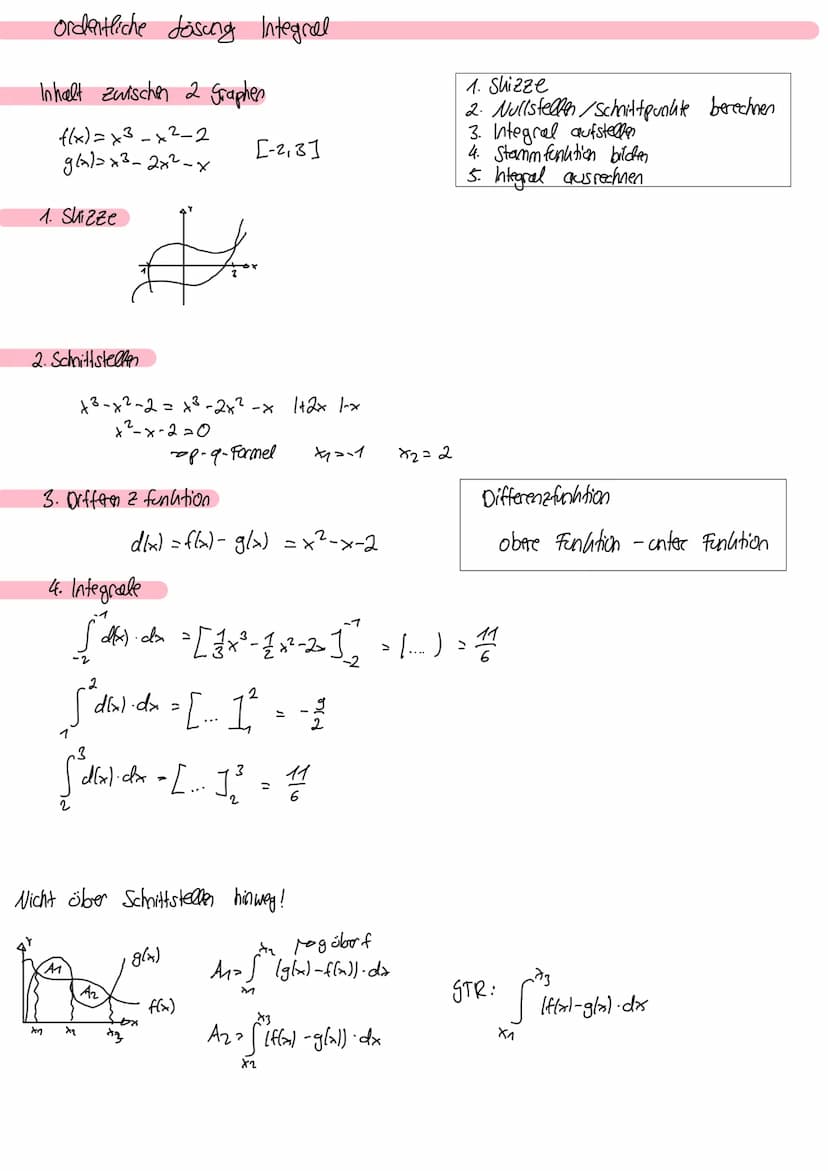 Ordentliche Lösung Integral
Inhalt zwischen 2 Graphen
f(x) = x³ - x² - 2
g(x) = x³ - 2x² - x
[-2,3]
1. Skizze
2. Nullstellen/Schnittpunkte berechnen
3. Integral aufstellen
4. Stammfunktion bilden
5. Integral ausrechnen
1. Skizze
Y
-1 2 x
2. Schnittstellen
x³ - x² - 2 = x³ - 2x² - x |+2x |-x
x² - x - 2 = 0
→ p-q-Formel x₁ = -1 x₂ = 2
3. Differenzfunktion
d(x) = f(x) - g(x) = x² - x - 2
Differenzfunktion
obere Funktion - unter Funktion
4. Integrale
∫₋₂⁻¹ d(x)·dx = [1/3 x³ - 1/2 x² - 2x]₋₂⁻¹ = (....) = 11/6
∫₋₁² d(x)·dx = [...]₋₁² = -9/2
∫₂³ d(x)·dx = [...]₂³ = 11/6
Nicht über Schnittstellen hinweg!
Y
A1
A2
g(x)
f(x)
x1 x2 x3 x
→ g über f
A₁ = ∫ₓ₁ˣ² (g(x) - f(x))·dx
A₂ = ∫ₓ₂ˣ³ (f(x) - g(x))·dx
GTR: ∫ₓ₁ˣ³ |f(x) - g(x)·dx